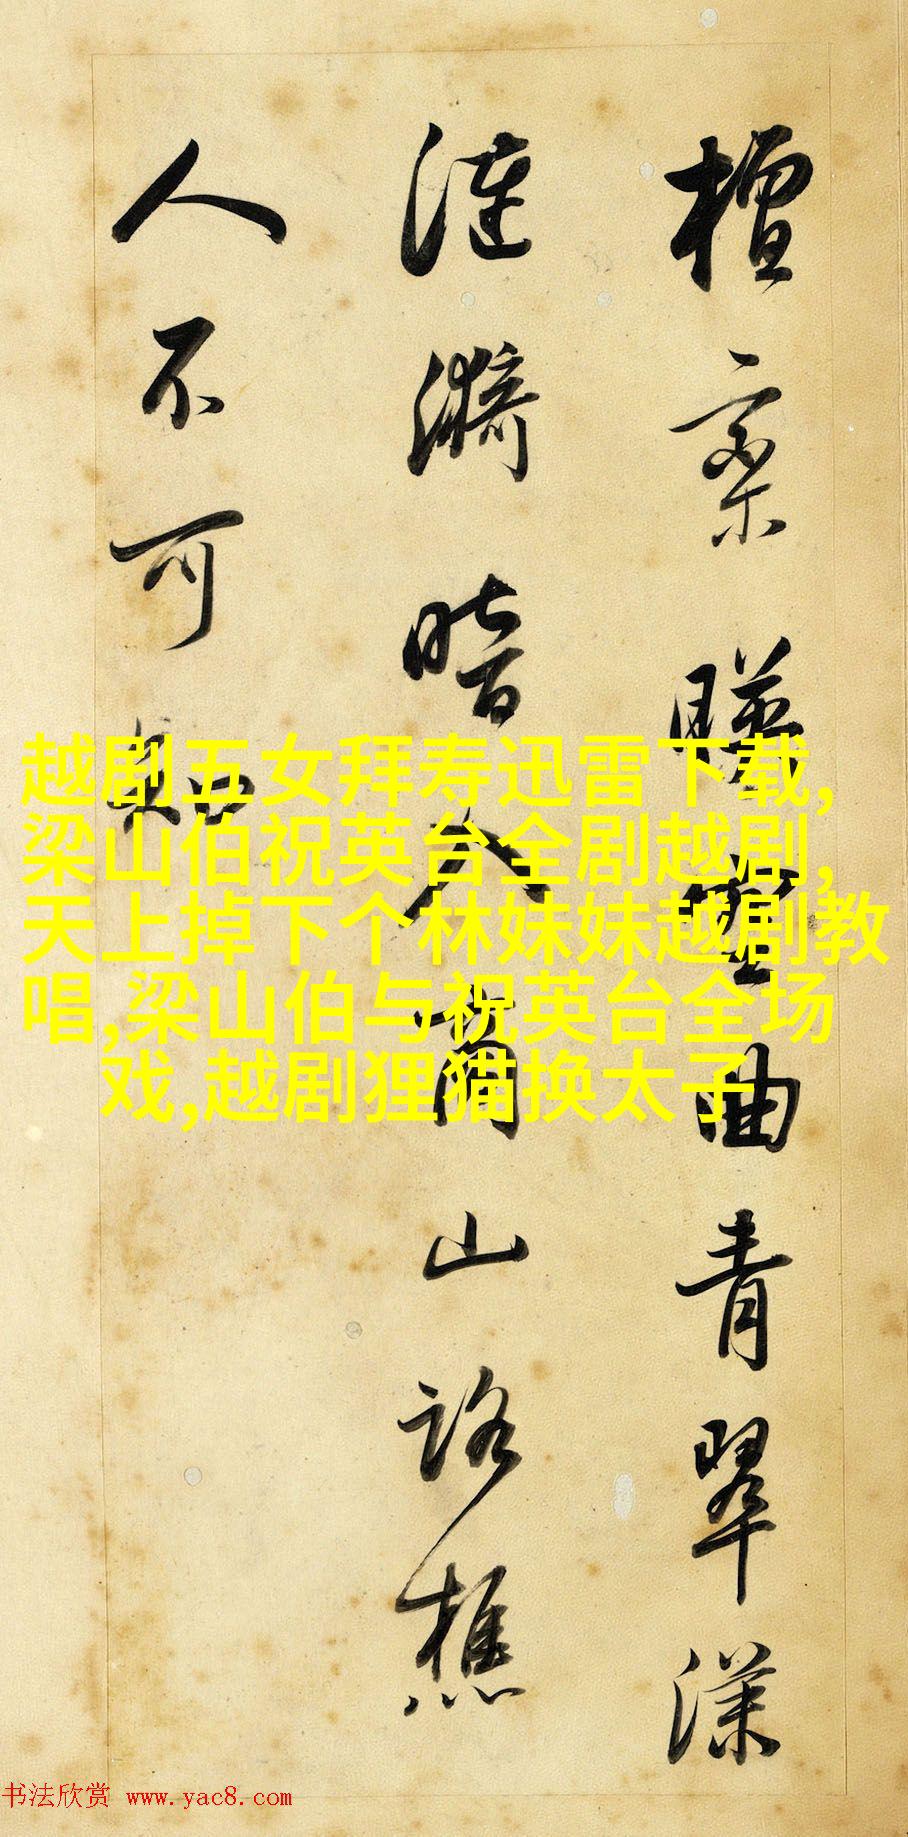 檀栾暎空曲青翠漾
漣漪暗入商山路樵
人不可知
越剧五女拜寿迅雷下载,
梁山伯祝英台全剧越剧,
天上掉下个林妹妹越剧教
唱,梁山伯与祝英台全场
戏,越剧狸猫换太子
书法欣赏 www.yac8.com